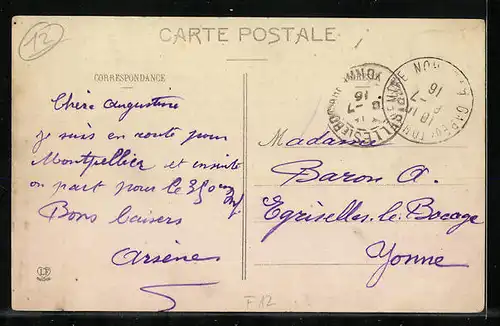 12
CARTE POSTALE
CORRESPONDANCE
Chère Augustine
je suis en route pour
Montpellier et ensuite
on part pour le 350
Bons baisers
Arsène
Madame
Baron A.
Egriselles-le-Bocage
Yonne
F12